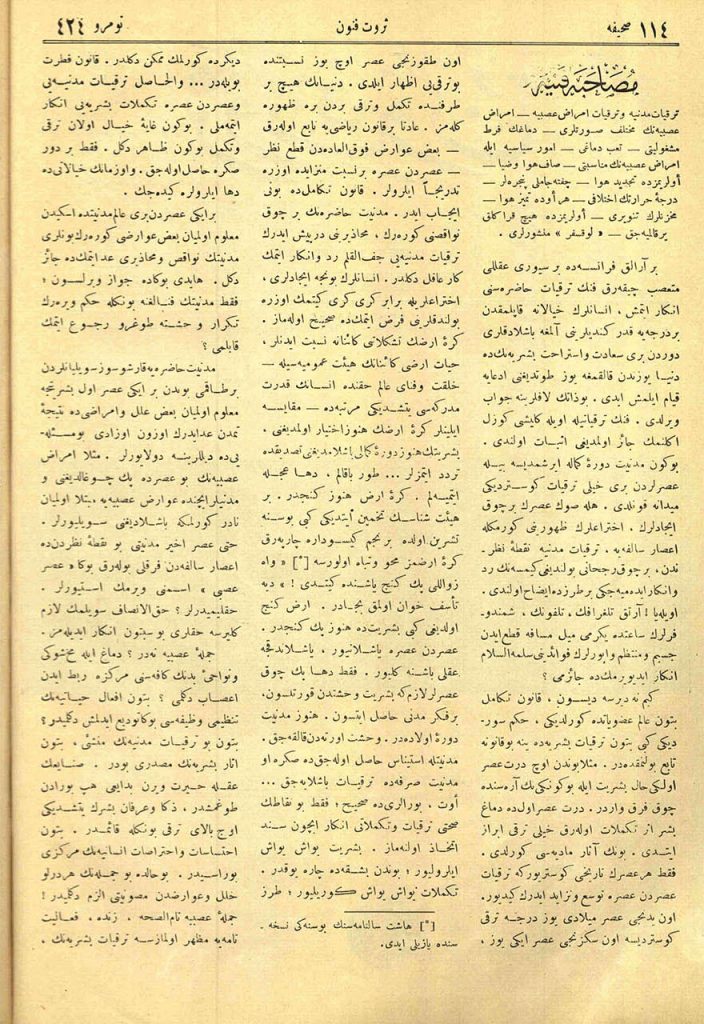 صحیفه ١١٤
ثروت فنون
نومرو ٤٢٤
مصاحبهٔ فنیه
ترقیات مدنیه و ترقیات امراض عصبیه — امراض
عصبیه‌نك مختلف صورتلری — دماغك فرط
مشغولیتی — تعب دماغی — امور سیاسیه ایله
امراض عصبیه‌نك مناسبتی — صاف هوا وضیا —
أولریمزده تجدید هوا — چفته جاملی پنجره‌لر —
درجهٔ حرارتك اختلافی — هر أوده تمیز هوا —
مخزنلرك تنویری — أولریمزده هیچ قراكلق
یر قالمیه‌جق — « لوقسفر » منشورلری .
بر آرالق فرانسه‌ده بر سیوری عقللی
متعصب چیقه‌رق فنك ترقیات حاضره‌سنی
انكار ایتمش ، انسانلرك خیالانه قاپلمقدن
بردرجه‌یه قدر كندیلرینی آلمغه باشلادقلری
دوردن بری سعادت واستراحت بشریه‌نك‌ده
دنیا یوزندن قالقمغه یوز طوتدیغنی ادعایه
قیام ایلمش ایدی . بوذاتك لافلرینه جواب
ویرلدی . فنك ترقیاتیله اویله كلیشی كوزل
اكلنمك جائز اولمدیغی اثبات اولندی .
بوكون مدنیت دورهٔ كماله ایرشمدیسه بیله
عصرلردن بری خیلی ترقیات كوستردیكی
میدانه قونلدی . هله صوك عصرك برچوق
ایجادلرك . اختراعلرك ظهورینی كورمكله
اعصار سالفه‌یه ، ترقیات مدنیه نقطهٔ نظر-
ندن ، برچوق رجحانی بولندیغی كیمسه‌نك رد
وانكار ایده‌میه‌جكی برطرزده ایضاح اولندی .
اویله‌یا ! آرتق تلغرافك ، تلفونك ، شمندو-
فرلرك ساعتده یكرمی میل مسافه قطع ایدن
جسیم ومنتظم واپورلرك فوائدینی سلمه السلام
انكار ایدیویرمك‌ده جائزمی ؟
كیم نه دیرسه دیسون ، قانون تكامل
بتون عالم عضویاتده كورلدیكی ، حكم سور-
دیكی كبی بتون ترقیات بشریه‌ده ینه بوقانونه
تابع بولنمقده‌در . مثلا بوندن اوچ درت عصر
اولكی حال بشریت ایله بوكونكی‌بك آره‌سنده
چوق فرق واردر . درت عصر اول‌ده دماغ
بشر از تكملات اوله‌رق خیلی ترقی ابراز
ایتدی . بونك آثار مادیه‌سی كورلدی .
فقط هر عصرك تاریخی كوستریوركه ترقیات
عصردن عصره توسع وتزاید ایدرك كیدیور.
اون یدنجی عصر میلادی یوز درجه ترقی
كوستردیسه اون سكزنجی عصر ایكی یوز ،
اون طقوزنجی عصر اوچ یوز نسبتنده
بوترقی‌یی اظهار ایلدی . دنیانك هیچ بر
طرفنده تكمل وترقی بردن بره ظهوره
كله‌مز . عادتا برقانون ریاضی‌یه تابع اوله‌رق
— بعض عوارض فوق‌العاده‌دن قطع نظر
— عصردن عصره بر نسبت متزایده اوزره
تدریجاً ایلرولر . قانون تكامل‌ده بونی
ایجاب ایدر . مدنیت حاضره‌نك بر چوق
نواقصنی كوره‌رك ، محاذیرینی درپیش ایدرك
ترقیات مدنیه‌یی جف القلم رد وانكار ایتمك
كار عاقل دكلدر . انسانلرك بونجه ایجادلری ،
اختراعلریله برابر كری كری كیتمك اوزره
بولندقلرینی فرض ایتمك‌ده صحیح اوله‌ماز .
كرهٔ ارضك تشكلاتی كائناته نسبت ایدنلر ،
حیات ارضی كائناتك هیئت عمومیه‌سیله —
خلقت وفنای عالم حقنده انسانك قدرت
مدركه‌سی یتشدیكی مرتبه‌ده — مقایسه
ایلینلر كرهٔ ارضك هنوز اختیار اولمدیغنی ،
بشریتك هنوز دورهٔ كمالی باشلامدیغنی تصدیقده
تردد ایتمزلر ... طور باقالم ، دها عجله
ایتمیه‌لم . كرهٔ ارض هنوز كنجدر . بر
هیئت شناسك تخمین ایتدیكی كبی بوسنه
تشرین اولده بر نجم كیسوداره چارپه‌رق
كرهٔ ارضمز محو وتباه اولورسه [*] « واه
زواللی یك كنج یاشنده كیتدی ! » دیه
تأسف خوان اولمق بجادر . ارض كنج
اولدیغی كبی بشریت‌ده هنوز یك كنجدر.
عصردن عصره یاشلانیور ، یاشلاندقجه
عقلی باشنه كلیور . فقط دها یك چوق
عصرلر لازم‌كه بشریت وحشتدن قورتلسون،
برفكر مدنی حاصل ایتسون . هنوز مدنیت
دورهٔ اولاده‌در . وحشت اورته‌دن قالقه‌جق .
مدنیتله استیناس حاصل اوله‌جق‌ده صكره او
مدنیت صرفه‌ده ترقیات باشلایه‌جق ...
أوت ، بورالری‌ده صحیح ؛ فقط بو نقاطك
صحتی ترقیات وتكملاتی انكار ایچون سند
اتخاذ اولنه‌ماز . بشریت یواش یواش
ایلرولیور ؛ بوندن بشقه‌ده چاره یوقدر .
تكملات یواش یواش كوریلیور ؛ طرز
[*] هاشت سالنامه‌سنك بوسنه‌كی نسخه -
سنده یازیلی ایدی.
دیكرده كورلمك ممكن دكلدر . قانون فطرت
بویله‌در ... والحاصل ترقیات مدنیه‌یی
وعصردن عصره تكملات بشریه‌یی انكار
ایتمه‌ملی . بوكون غایهٔ خیال اولان ترقی
وتكمل بوكون ظاهر دكل . فقط بر دور
صكره حاصل اوله‌جق . واوزمانك خیالاتی‌ده
دها ایلرولره كیده‌جك .
برایكی عصردن بری عالم مدنیتده اسكیدن
معلوم اولمیان بعض عوارضی كوره‌رك بونلری
مدنیتك نواقص ومحاذیری عد ایتمك‌ده جائز
دكل . هایدی بوكاده جواز ویرلسون ؛
فقط مدنیتك فنالغنه بونكله حكم ویره‌رك
تكرار و حشته طوغرو رجوع ایتمك
قابلمی ؟
مدنیت حاضره‌یه قارشو سوز سویلیانلردن
بر طاقمی بوندن بر ایكی عصر اول بشریتجه
معلوم اولمیان بعض علل وامراضی‌ده نتیجهٔ
تمدن عد ایدرك اوزون اوزادی بومسئله-
یی‌ده دیللرینه دولابورلر . مثلا امراض
عصبیه‌نك بو عصرده یك چوغالدیغنی و
مدنیلر ایچنده عوارض عصبیه‌یه مبتلا اولمیان
نادر كورلمكه باشلادیغنی سویلیورلر .
حتی عصر اخیر مدنیتی بو نقطهٔ نظردن‌ده
اعصار سالفه‌دن فرقلی بوله‌رق بوكا « عصر
عصبی » اسمنی ویرمك استیورلر .
حقلیمیدرلر ؟ حق‌الانصاف سویلمك لازم
كلیرسه حقلری بوسبتون انكار ایدیله‌مز .
جملهٔ عصبیه نه‌در ؟ دماغ ایله مخ‌شوكی
ونواحیٔ بدنك كافه‌سنی مركزه ربط ایدن
اعصاب دكلمی ؟ بتون افعال حیاتیه‌نك
تنظیمی وظیفه‌سی بوكا تودیع ایدلمش دكلمیدر؟
بتون بو ترقیات مدنیه‌نك منشئی ، بتون
آثار بشریه‌نك مصدری بودر . صنایعك
عقله حیرت ویرن بدایعی هپ بورادن
طوغمشدر ، ذكا وعرفان بشرك یتشدیكی
اوج بالای ترقی بونكله قائمدر . بتون
احتساسات واحتراصات انسانیه‌نك مركزی
بوراسیدر . بوحالده بو جمله‌نك هردرلو
خلل وعوارضدن مصونیتی الزم دكلمیدر!
جملهٔ عصبیه تام‌الصحه ، زنده ، فعالیت
تامه‌یه مظهر اولمازسه ترقیات بشریه‌نك ،